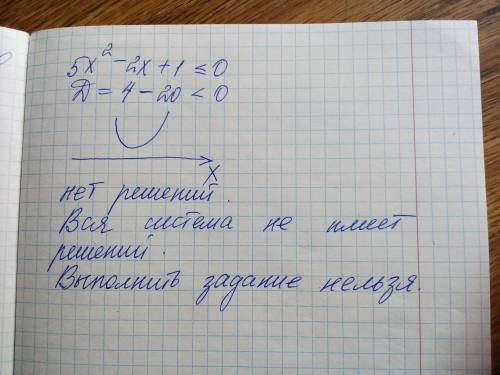 5x² - 2x + 1 ≤ 0
D = 4 - 20 < 0
x
нет решений.
Вся система не имеет
решений.
Выполнить задание нельзя.